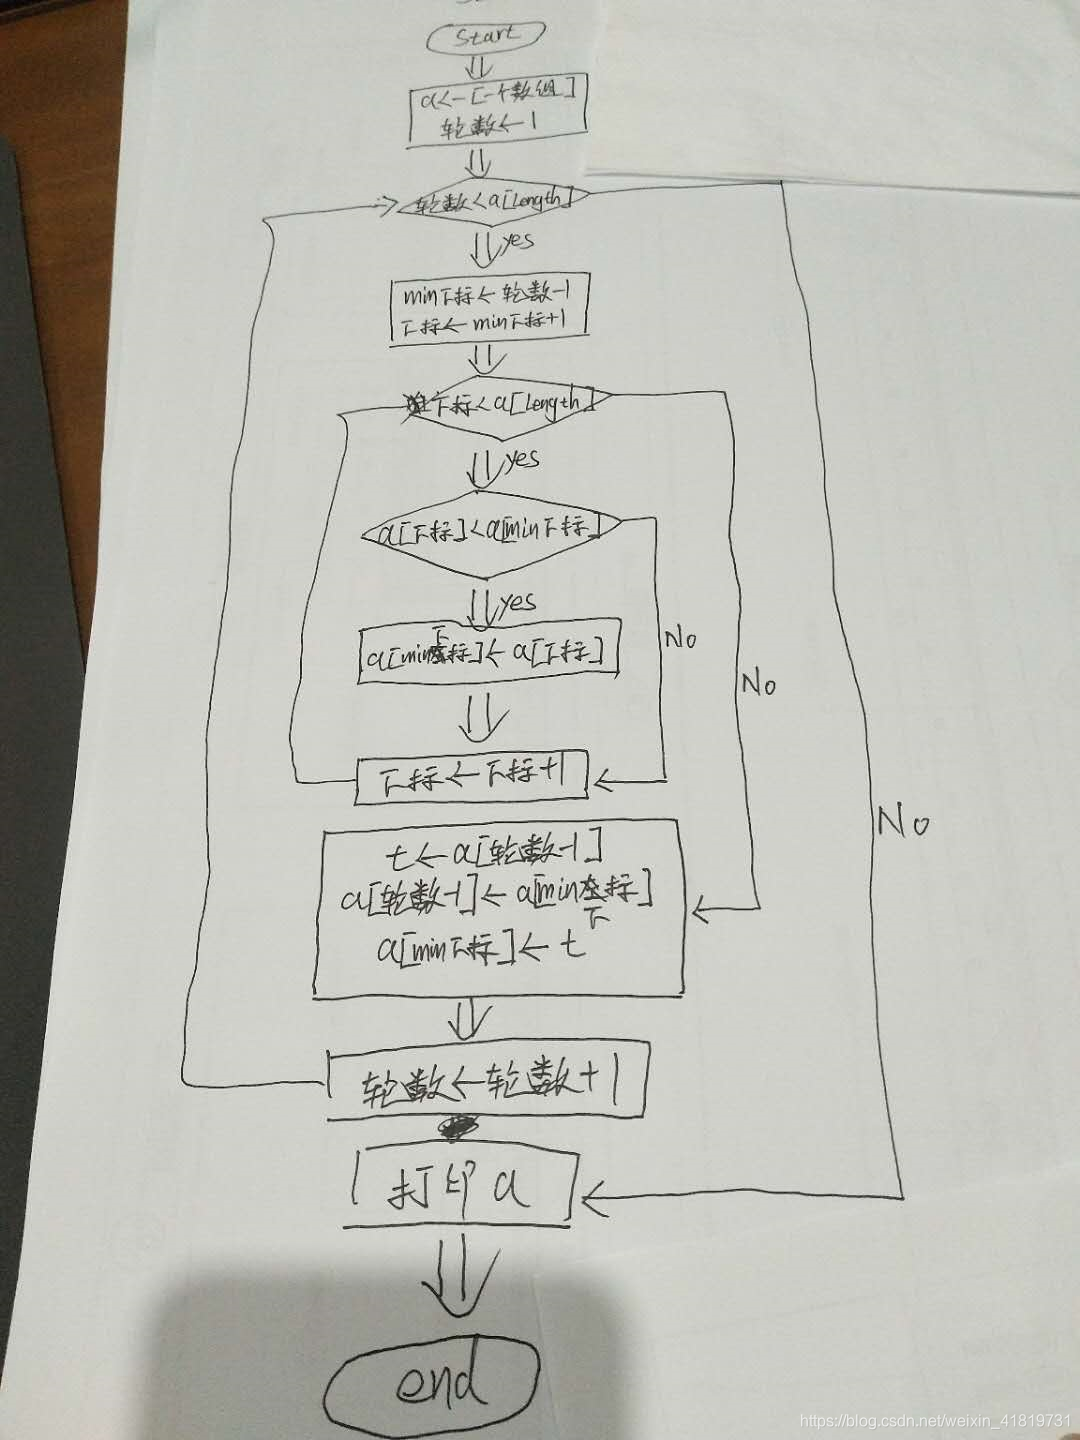 Start
a←[一个数组]
轮数←1
轮数<a[Length]
yes
min下标←轮数-1
下标←min下标+1
下标<a[Length]
yes
a[下标]<a[min下标]
yes
a[min下标]←a[下标]
No
No
下标←下标+1
No
t←a[轮数-1]
a[轮数-1]←a[min下标]
a[min下标]←t
轮数←轮数+1
打印a
end
https://blog.csdn.net/weixin_41819731